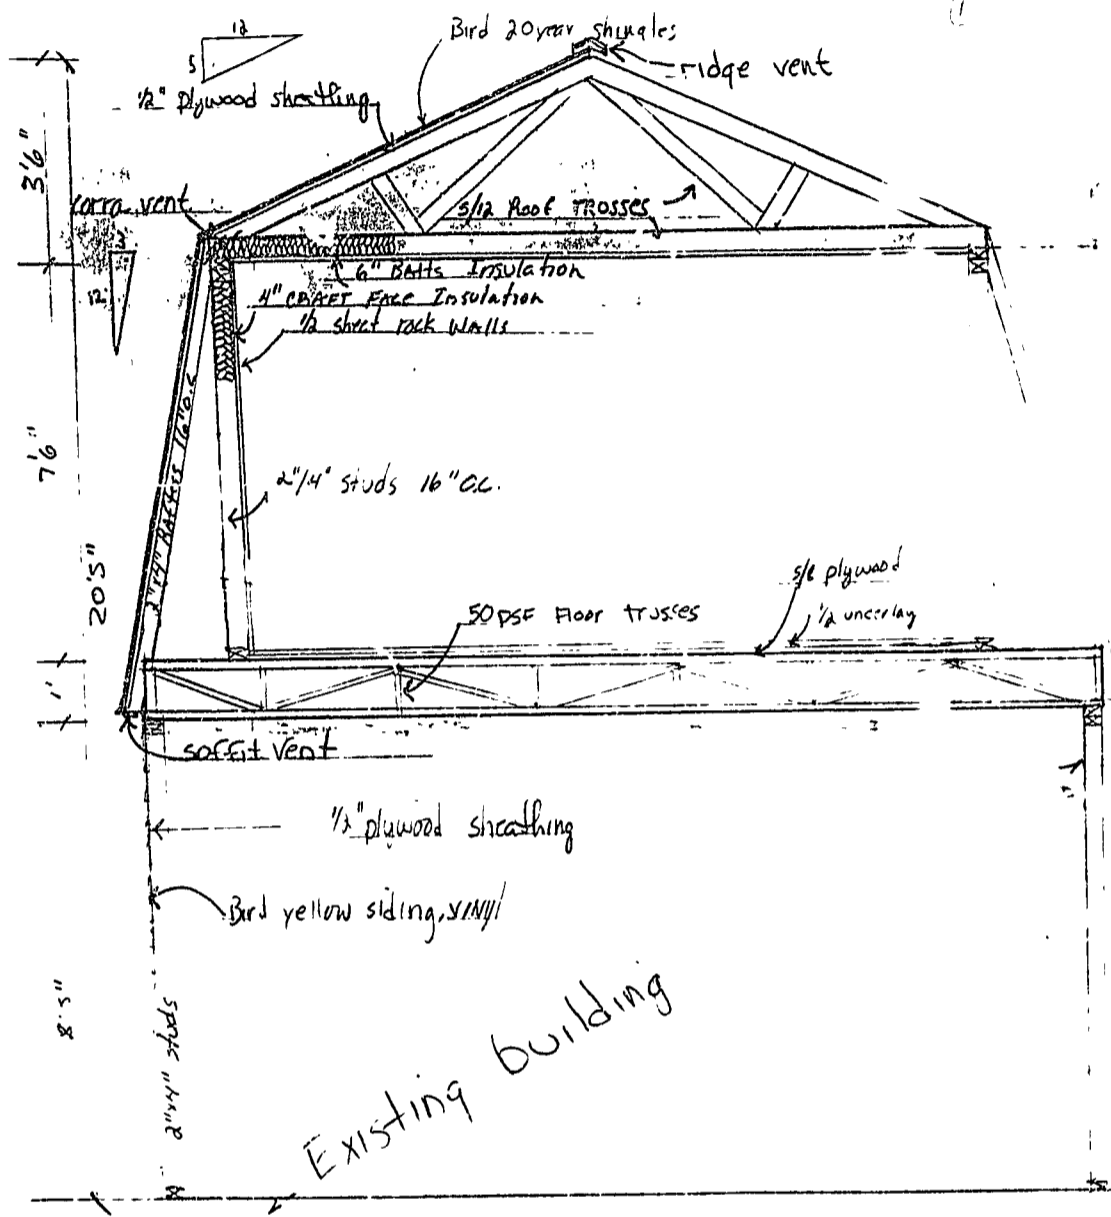 12
5
Bird 20 year shingles
ridge vent
1/2" plywood sheathing
3'6"
corra vent
5/12 Roof TRUSSES
6" BAtts Insulation
4" CRAFT FACE Insulation
1/2 sheet rock WAlls
12
7'6"
2"x4" RAFters 16" O.C
2"/4" studs 16" O.C.
20'5"
5/8 plywood
1/2 underlay
50 PSF Floor trusses
1'
soffit vent
1/2" plywood sheathing
Bird yellow siding, VINYl
8'5"
2"x4" studs
Existing building